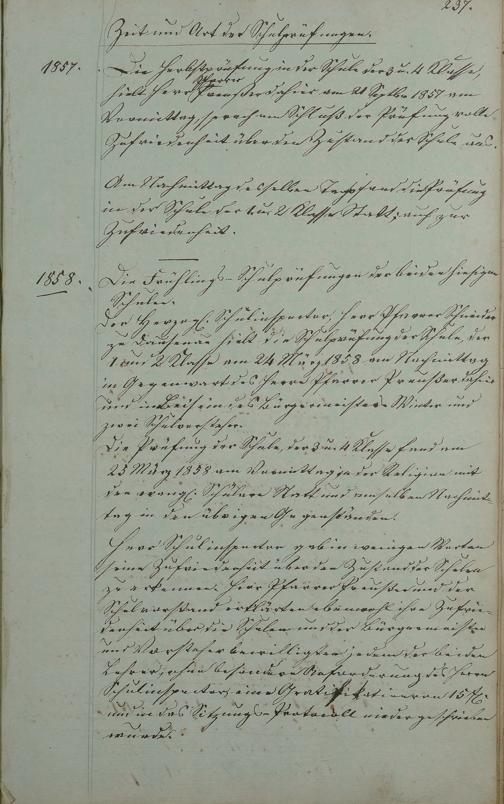 237.
Zeit und Art der Schulprüfungen.
1857. Die Herbstprüfung in der Schule der 3 u. 4 Klasse,
hielt Herr Pfarrer Preußer dahier am 21 Septbr 1857 am
Vormittag, sprach am Schluß der Prüfung volle
Zufriedenheit über den Zustand der Schule aus.
Am Nachmittag desselben Tags fand die Prüfung
in der Schule der 1 u. 2 Klasse Statt, auch zur
Zufriedenheit.
1858. Die Frühlings-Schulprüfungen der beiden hiesigen
Schulen.
Der Herzogl. Schulinspector, Herr Pfarrer Schneider
zu Dausenau hielt die Schulprüfung der Schule, der
1 und 2 Klasse am 24 März 1858 am Nachmittag
in Gegenwart des Herrn Pfarrer Preußer dahier
und im Beisein des Bürgermeisters Winter und
zwei Schulvorsteher.
Die Prüfung der Schule, der 3 u. 4 Klasse fand am
25 März 1858 am Vormittag in der Religion mit
den evangl. Schülern Statt und am selben Nachmit-
tag in den übrigen Gegenständen.
Herr Schulinspector gab in wenigen Worten
seine Zufriedenheit über den Zustand der Schulen
zu erkennen. Herr Pfarrer Preußer und der
Schulvorstand erklärten ebenwohl ihre Zufrie-
denheit über die Schulen und der Bürgermeister
und Vorsteher bewilligten jedem der beiden
Lehrer, ohne besondere Anforderung des Herrn
Schulinspectors, eine Gratifikation von 15 fl.
und in das Sitzungs-Protocoll niedergeschrieben
wurde.